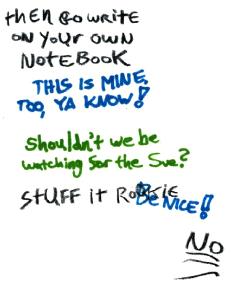 THEN GO WRITE
ON YOUR OWN
NOTEBOOK
THIS IS MINE.
TOO, YA KNOW!
Shouldn't we be
watching for the Sue?
STUFF IT ROOKIE
BE NICE!!
NO